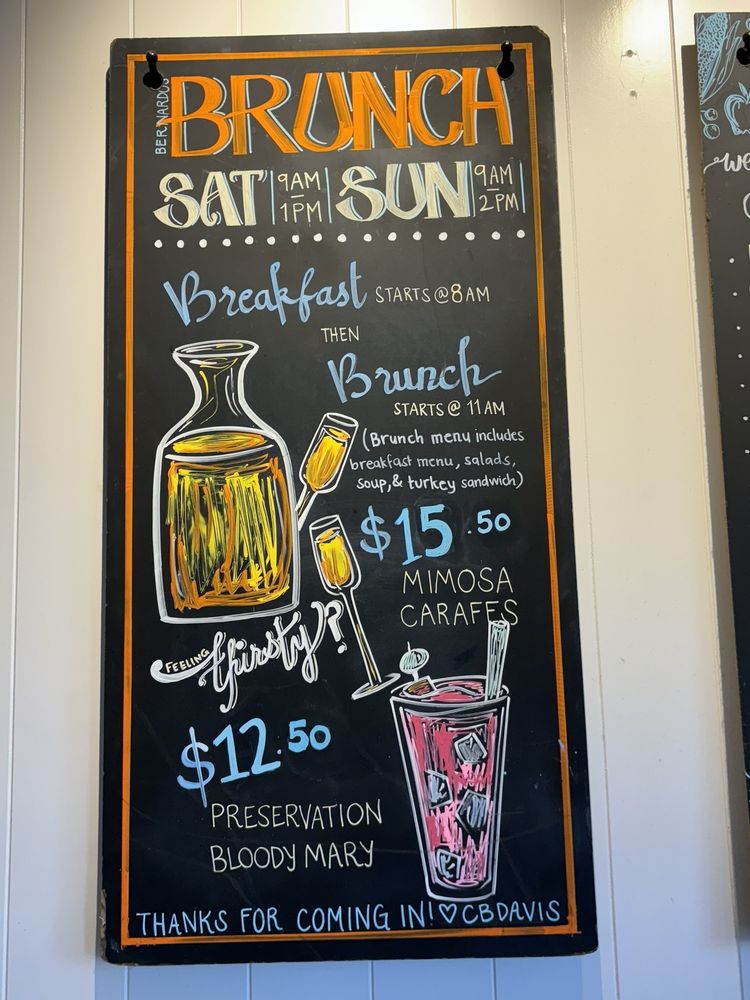 BERNARDUS
BRUNCH
SAT 9AM – 1PM SUN 9AM – 2PM
Breakfast STARTS @ 8AM
THEN
Brunch
STARTS @ 11AM
(Brunch menu includes
breakfast menu, salads,
soup, & turkey sandwich)
$15.50
MIMOSA
CARAFES
FEELING thirsty?
$12.50
PRESERVATION
BLOODY MARY
THANKS FOR COMING IN! ♡ CBDAVIS
we